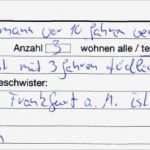 mann vor 10 Jahren ver
Anzahl 3 wohnen alle / te
mit 3 Jahren tödlic
eschwister:
Frankfurt a. M. ist